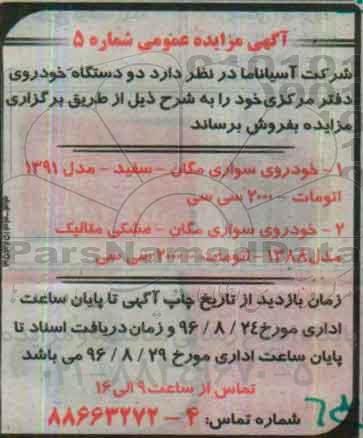 آگهی مزایده عمومی شماره ۵
شرکت آسیاناما در نظر دارد دو دستگاه خودروی
دفتر مرکزی خود را به شرح ذیل از طریق برگزاری
مزایده بفروش برساند
۱ - خودروی سواری مگان - سفید - مدل ۱۳۹۱
اتومات - ۲۰۰۰ سی سی
۲ - خودروی سواری مگان - مشکی متالیک
مدل ۱۳۸۸ - اتومات - ۲۰۰۰ سی سی
زمان بازدید از تاریخ چاپ آگهی تا پایان ساعت
اداری مورخ ۲۴ / ۸ / ۹۶ و زمان دریافت اسناد تا
پایان ساعت اداری مورخ ۲۹ / ۸ / ۹۶ می باشد
تماس از ساعت ۹ الی ۱۶
شماره تماس: ۴ - ۸۸۶۶۳۲۷۲
ParsNamadData